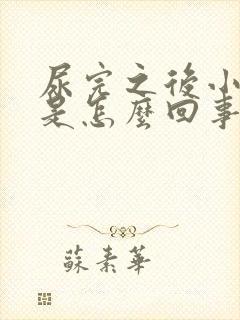 尿完之後小
是怎麼回事
蘇素華